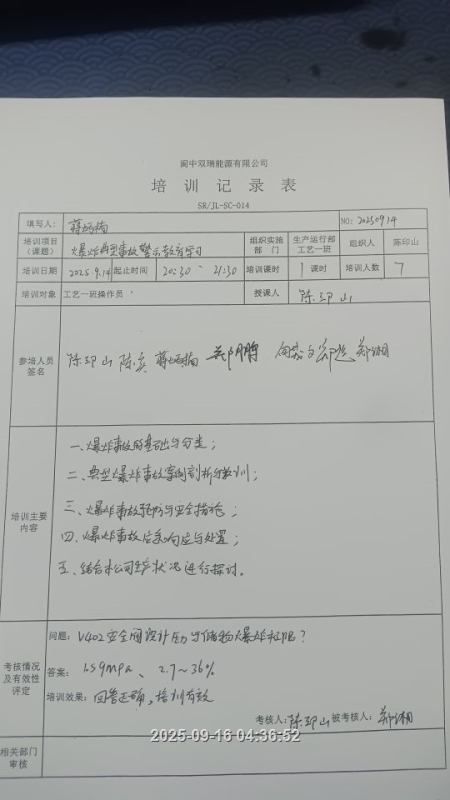 阆中双瑞能源有限公司
培训记录表
SR/JL-SC-014
填写人: 蒋炳楠 NO: 20250914
培训项目(课题) 爆炸典型事故警示教育学习 组织实施部门 生产运行部工艺一班 组织人 陈印山
培训日期 2025.9.14 起止时间 20:30 - 21:30 培训课时 1课时 培训人数 7
培训对象 工艺一班操作员 授课人 陈印山
参培人员签名 陈印山 陈 蒋炳楠 郑湘
培训主要内容
一、爆炸事故的基础与分类;
二、典型爆炸事故案例剖析与教训;
三、爆炸事故预防与安全措施;
四、爆炸事故应急响应与处置;
五、结合本公司生产状况进行探讨。
考核情况及有效性评定
问题: V402安全阀设计压力与储物爆炸极限?
答案: 1.59mpa、2.7~36%
培训效果: 回答正确,培训有效
考核人: 陈印山 被考核人: 郑湘
相关部门审核
2025-09-16 04:36:52